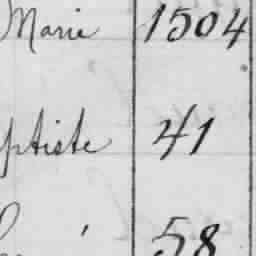 Marie 1504
ptiste 41
58